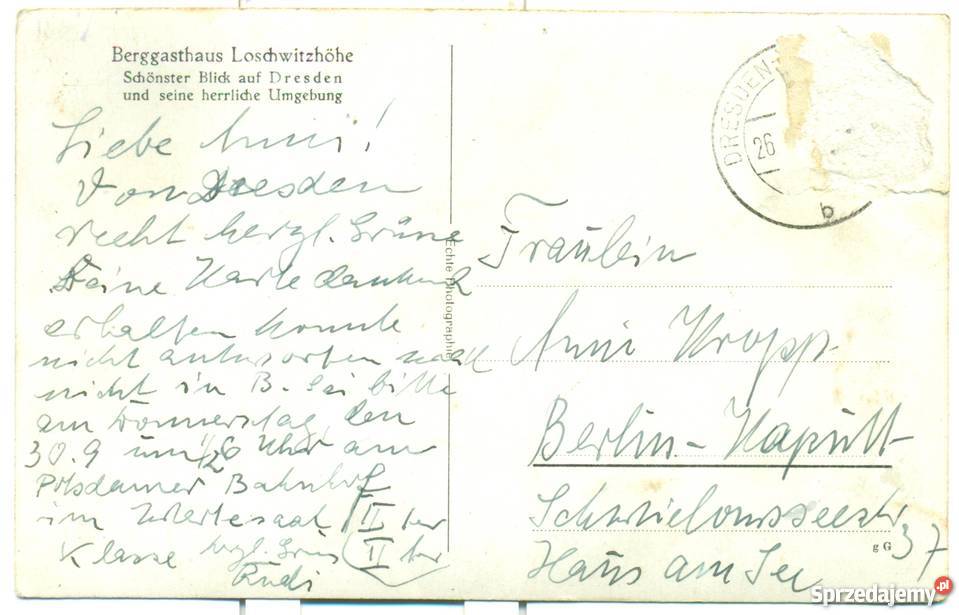 Berggasthaus Loschwitzhöhe
Schönster Blick auf Dresden
und seine herrliche Umgebung
Liebe Anni!
Von Dresden
recht herzl. Grüße
Deine Karte dankend
erhalten konnte
nicht antworten war
nicht in B. Sei bitte
am Donnerstag, den
30.9 um 1/2 6 Uhr am
Potsdamer Bahnhof
im Wartesaal II ter
Klasse herzl. Grüß II ter
Rudi
Echte Photographie
DRESDEN
26
b
Fräulein
Anni Kropp
Berlin-Kaputt
Schwielowseestr
37
Haus am See
g G
Sprzedajemy.pl